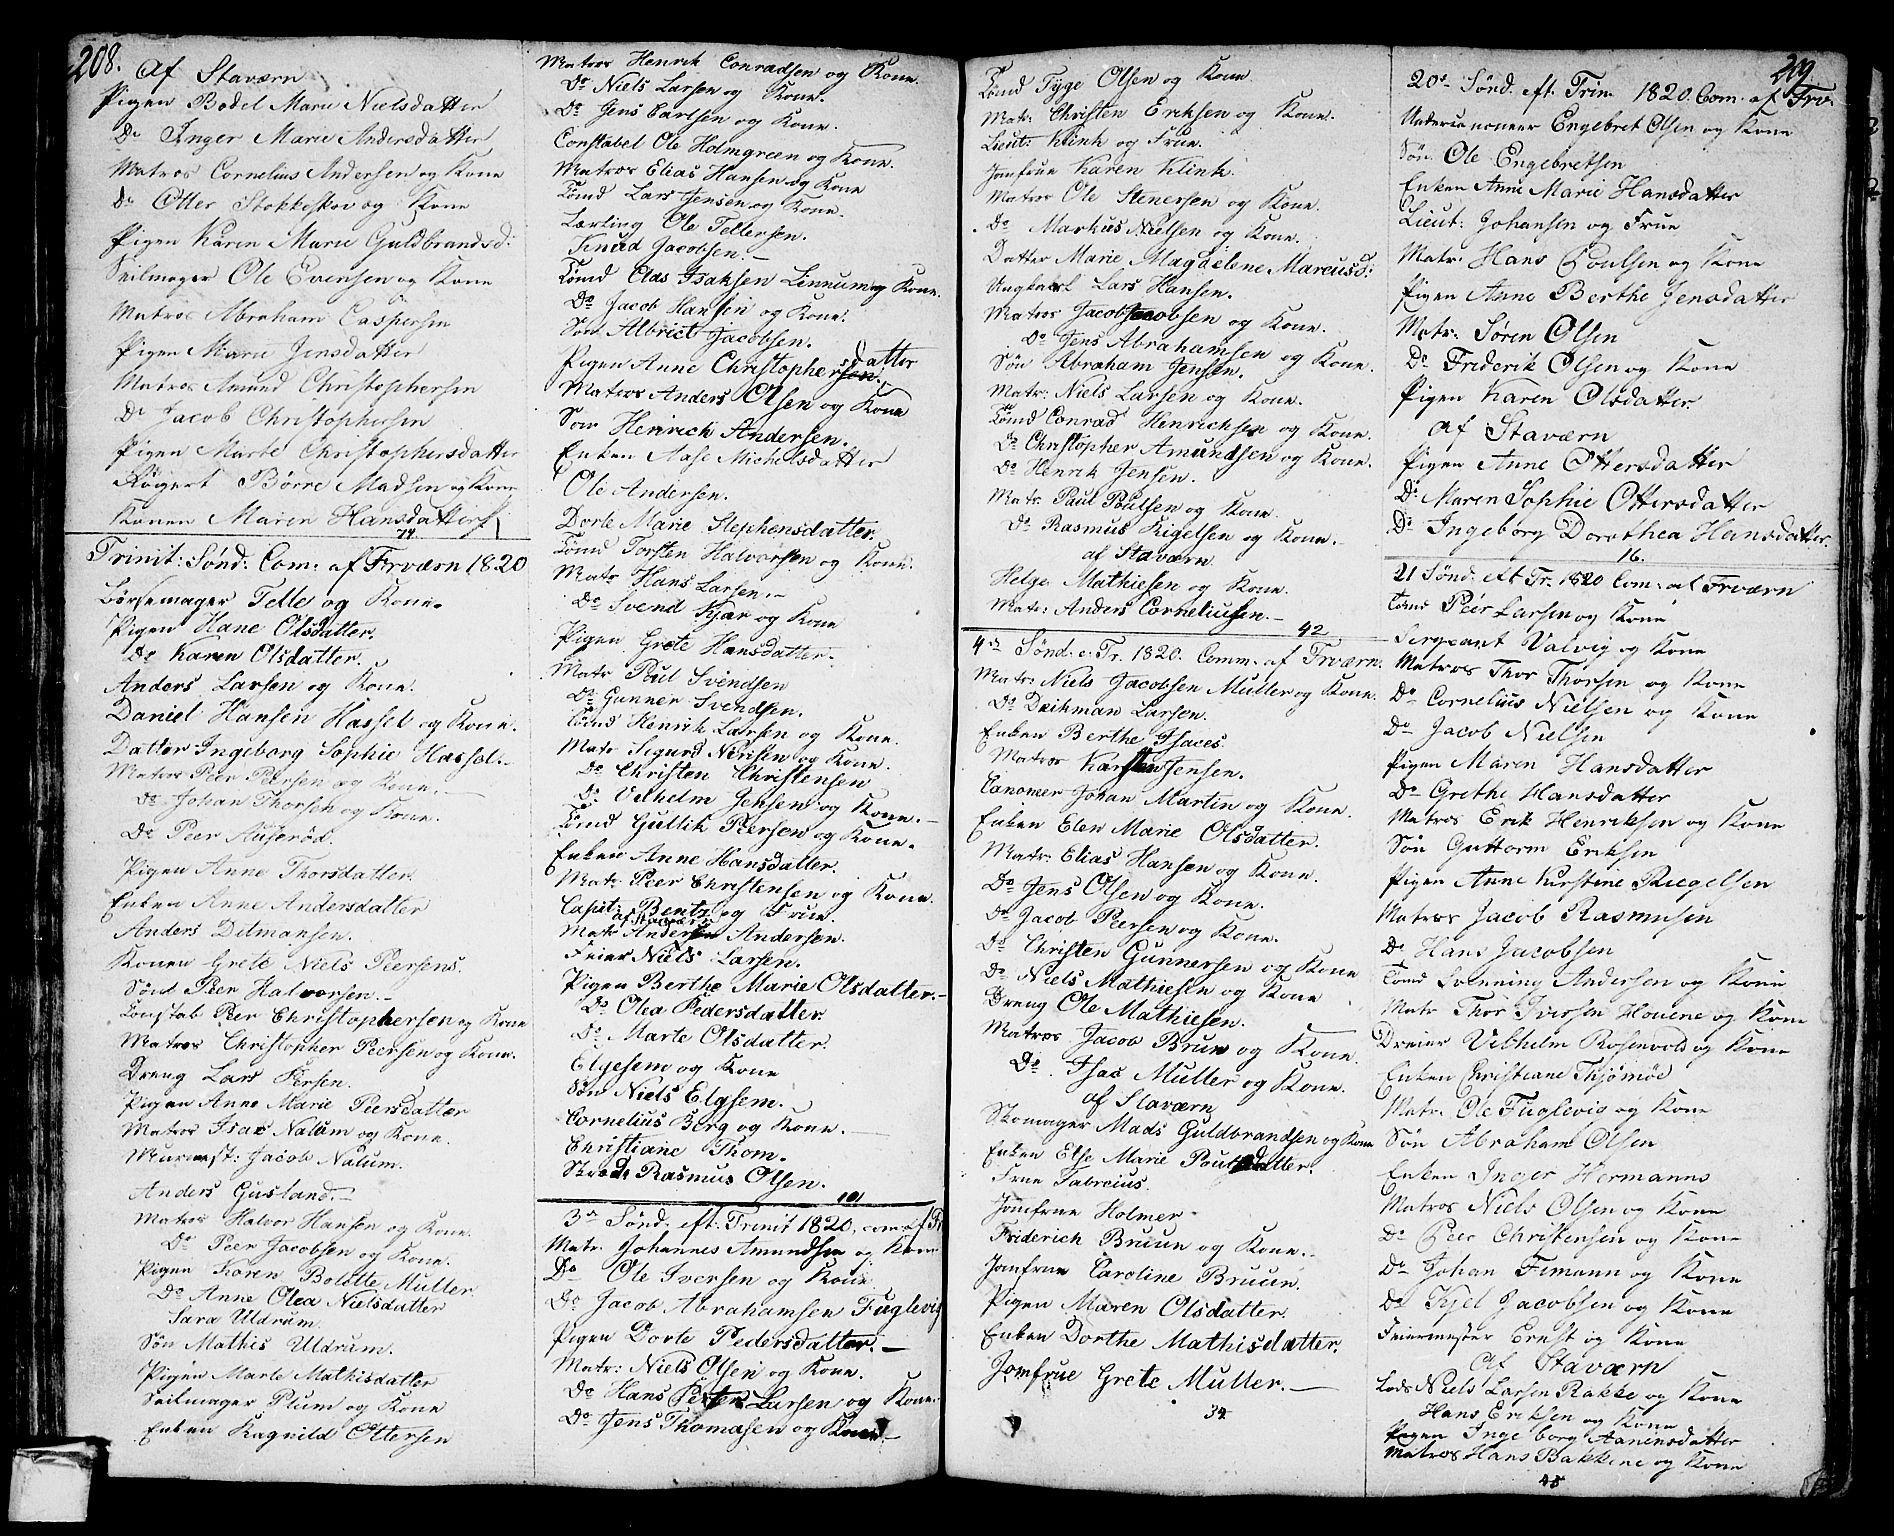 208.
Af Staværn
Pigen Bodel Marie Nielsdatter
Do Inger Marie Andersdatter
Matros Cornelius Andersen og Kone
Do Otter Stokkeskov og Kone
Pigen Karen Marie Guldbrandsd:
Seilmager Ole Evensen og Kone
Matros Abraham Caspersen
Pigen Marie Jensdatter
Matros Amund Christophersen
Do Jacob Christophersen
Pigen Marte Christophersdatter
Røigert Børre Madsen og Kone
Konen Maren Hansdatter
74
Trinit: Sønd: Com: af Frværn 1820
Børsemager Telle og Kone.
Pigen Hane Olsdatter.
Do Karen Olsdatter.
Anders Larsen og Kone.
Daniel Hansen Hassel og Kone.
Datter Ingeborg Sophie Hassel.
Matros Peer Peersen og Kone.
Do Johan Thorsen og Kone.
Do Peer Auserød.
Pigen Anne Thorsdatter.
Enken Anne Andersdatter
Anders Ditmansen.
Konen Grete Niels Peersens.
Sønd Peer Halvorsen.
Constab Peer Christophersen og Kone
Matros Christopher Peersen og Kone.
Dreng Lars Persen.
Pigen Anne Marie Peersdatter
Matros Isac Nalum og Kone.
Murmest: Jacob Nalum.
Anders Gusland.
Matros Halvor Hansen og Kone.
Do Peer Jacobsen og Kone.
Pigen Karen Bolette Muller
Do Anne Olea Nielsdatter
Sara Uldrum.
Søn Mathis Uldrum.
Pigen Marte Mathisdatter
Seilmager Plum og Kone
Enken Ragnild Ottersen
Matros Henrik Conradsen og Kone.
Do Niels Larsen og Kone.
Do Jens Carlsen og Kone.
Constabel Ole Holmgreen og Kone.
Matros Elias Hansen og Kone
Tømd Lars Jensen og Kone.
Lærling Ole Tellersen.
Knud Jacobsen.
Tømd Clas Isaksen Linnum og Kone.
Do Jacob Hansen og Kone.
Søn Albrict Jacobsen.
Pigen Anne Christophersdatter
Matros Anders Olsen og Kone
Søn Henrich Andersen.
Enken Aase Michelsdatter
Ole Andersen.
Dorte Marie Stephensdatter
Tømd Torsten Halvorsen og Kone.
Matr Hans Larsen.
Do Svend Kjær og Kone
Pigen Grete Hansdatter.
Matr Poul Svendsen
Do Gunner Svendsen.
Tømd Henrik Larsen og Kone.
Matr Sigurd Nerisen og Kone.
Do Christen Christensen
Do Velhelm Jensen og Kone.
Tømd Gullik Peersen og Kone.
Enken Anne Hansdatter.
Matr Peer Christensen og Kone.
Capit: Bentz og Frue.
af Staværn
Matr Andersen Andersen.
Feier Niels Larsen.
Pigen Berthe Marie Olsdatter.
Do Olea Pedersdatter.
Do Marte Olsdatter.
Elgesem og Kone
Søn Niels Elgsem.
Cornelius Berg og Kone.
Christiane Thom.
Rasmus Olsen.
101
3de Sønd: eft: Trinit 1820, com: af Fr
Matr. Johannes Amundsen og Kone
Do Ole Iversen og Kone
Do Jacob Abrahamsen Fuglevig
Pigen Dorte Pedersdatter.
Matr: Niels Olsen og Kone.
Do Hans Larsen og Kone.
Do Jens Thomasen og Kone
Tømd Tyge Olsen og Kone
Matr: Christen Eriksen og Kone.
Lieut: Klink og Frue.
Jomfrue Karen Klink.
Matros Ole Stenersen og Kone.
Do Markus Nielsen og Kone.
Datter Marie Magdelene Marcusd:
Ungkarl Lars Hansen.
Matros Jacob Jacobsen og Kone.
Do Jens Abrahamsen og Kone.
Søn Abraham Jensen.
Matr: Niels Larsen og Kone.
Tømd Conrad Henrichsen og Kone.
Do Christopher Amundsen og Kone.
Do Henrik Jensen.
Matr: Paul Poulsen og Kone.
Do Rasmus Rigelsen og Kone.
af Staværn
Helge Mathiesen og Kone.
Matr: Anders Corneliussen.
42
4de Sønd: e: Tr. 1820. Comm: af Frværn.
Matr: Niels Jacobsen Muller og Kone.
Do Deikman Larsen.
Enken Berthe Isaces
Matros Karsten Jensen.
Canoneer Johan Martin og Kone.
Enken Elen Marie Olsdatter.
Matr: Elias Hansen og Kone.
Do Jens Olsen og Kone.
Do Jacob Peersen og Kone.
Do Christen Gunnersen og Kone
Do Niels Mathiesen og Kone
Dreng Ole Mathiesen.
Matros Jacob Brun og Kone.
Do Isac Muller og Kone.
af Staværn
Skomager Mads Guldbrandsen og Kone
Enken Else Marie Poulsdatter.
Frue Fabrcius.
Jomfrue Holmer
Friderich Bruun og Kone.
Jomfrue Caroline Bruun.
Pigen Maren Olsdatter.
Enken Dorthe Mathisdatter.
Jomfrue Grete Muller.
34
209.
20de Sønd: eft: Trin: 1820. Com: af Frv.
Undercanoneer Engebret Olsen og Kone
Søn Ole Engebretsen
Enken Anne Marie Hansdatter
Lieut: Johansen og Frue
Matr: Hans Poulsen og Kone
Pigen Anne Berthe Jensdatter
Matr: Søren Olsen
Do Friderik Olsen og Kone
Pigen Karen Olsdatter.
af Staværn
Pigen Anne Ottersdatter
Do Maren Sophie Ottersdatter
Do Ingeborg Dorothea Hansdatter.
16.
21 Sønd: eft Tr. 1820 Com: af Frværn
Tømd Peer Larsen og Kone
Sergeant Valvig og Kone
Matros Thor Thorsen og Kone
Do Cornelius Nielsen og Kone
Do Jacob Nielsen
Pigen Maren Hansdatter
Do Grethe Hansdatter
Matros Erik Henriksen og Kone
Søn Guttorm Eriksen
Pigen Anne Kirstine Riegelsen
Matros Jacob Rasmusen
Do Hans Jacobsen
Tømd Svenning Andersen og Kone
Matr Thor Iversen Houene og Kone
Dreier Vilhelm Rosenvold og Kone
Enken Christiane Thjømøe
Matr. Ole Fuglevig og Kone
Søn Abraham Olsen
Enken Inger Hermanns
Matros Niels Olsen og Kone
Do Peer Christensen og Kone
Do Johan Timann og Kone
Do Kjel Jacobsen og Kone
Feiermester Ernst og Kone
Af Staværn
Lods Niels Larsen Rakke og Kone
Hans Eriksen og Kone
Pigen Ingeborg Aanensdatter
Matros Hans Bakkene og Kone
45